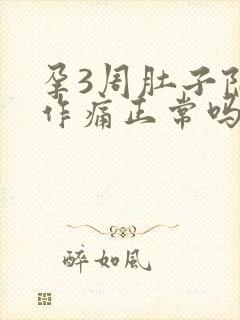 孕3周肚子
作痛正常吗
醉如风